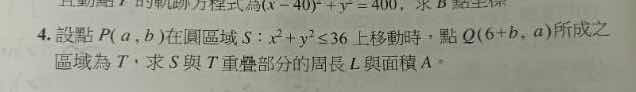 的軌跡方程式為(x − 40)² + y² = 400, 求 B 點坐標
4. 設點 P( a , b )在圓區域 S：x² + y² ≤ 36 上移動時，點 Q(6+b, a)所成之
區域為 T，求 S 與 T 重疊部分的周長 L 與面積 A。